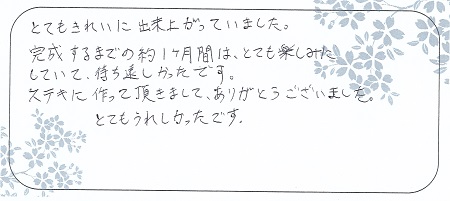 とてもきれいに出来上がっていました。
完成するまでの約1ヶ月間は、とても楽しみに
していて、待ち遠しかったです。
ステキに作って頂きまして、ありがとうございました。
とてもうれしかったです。